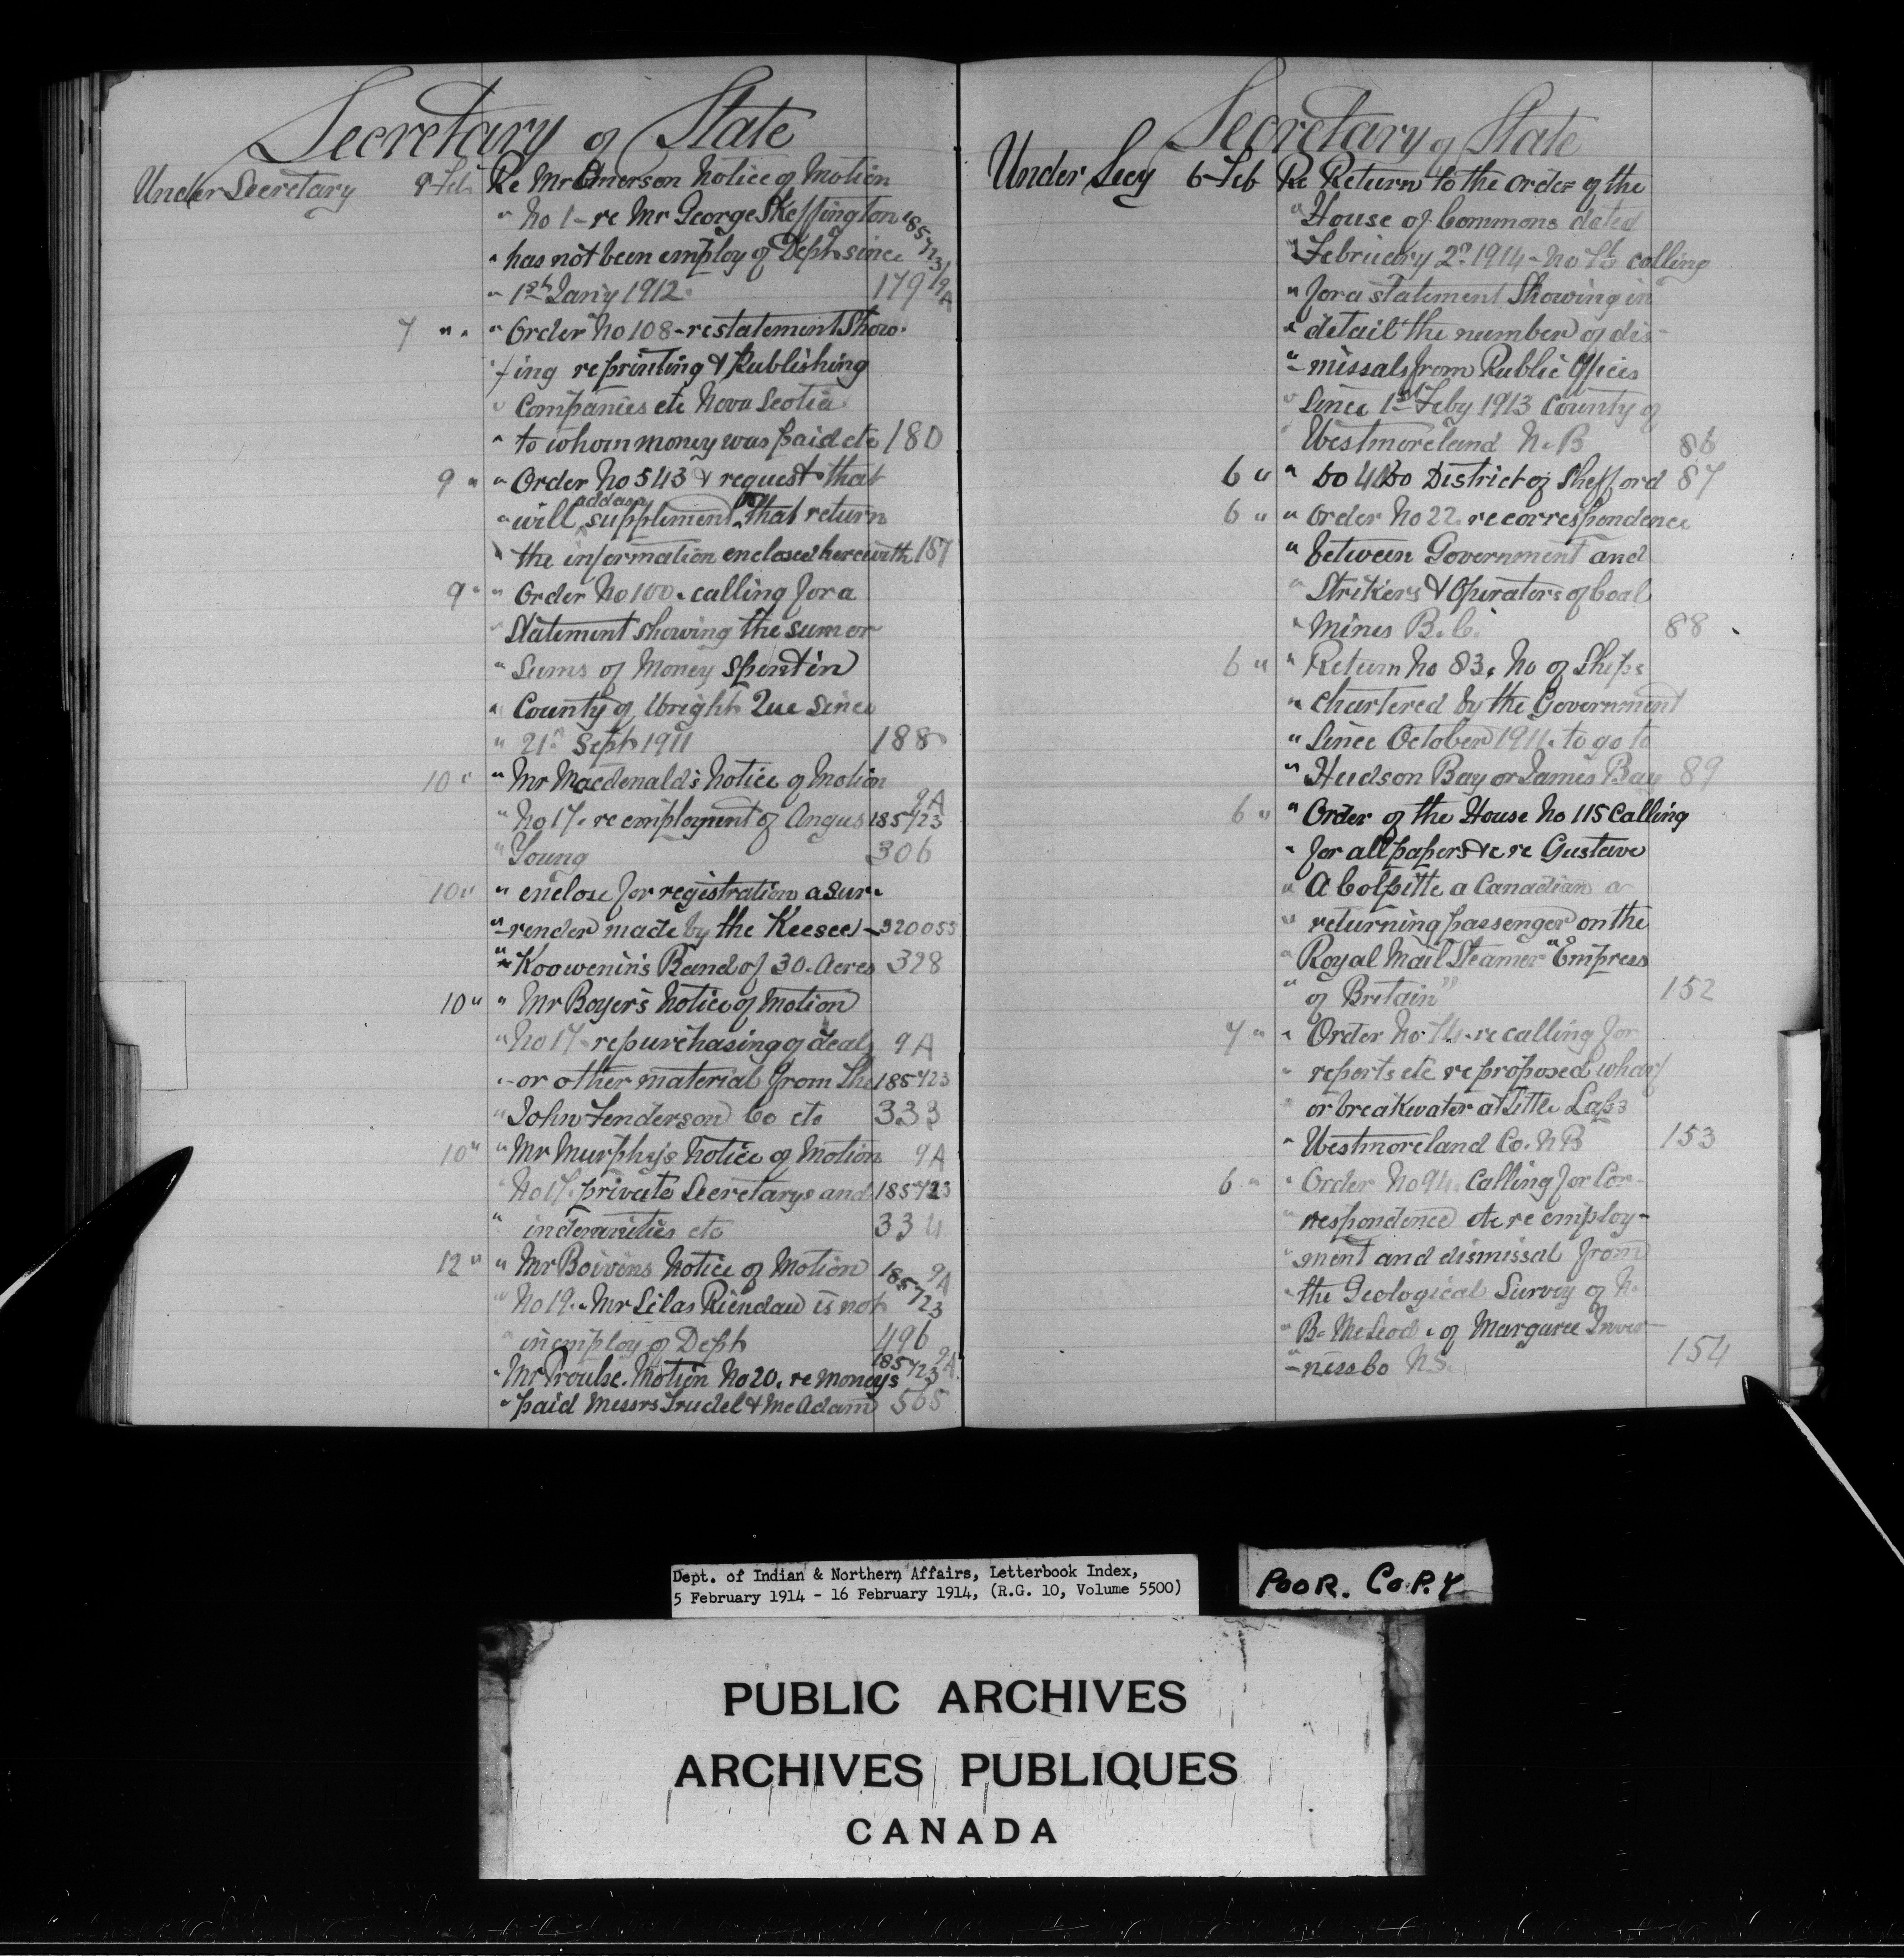 Secretary of State
Under Secretary 9 Feb Re Mr Emerson Notice of Motion
" No 1 - re Mr George Skeffington 185723
" has not been employ of Dept since
" 1st Jan'y 1912. 179 9A
7 " " Order No 108 - re statement show-
" ing re printing & Publishing
" Companies etc Nova Scotia
" to whom money was paid etc 180
9 " " Order No 543 & request that
" will address suppliment that return
" the information enclosed herewith 187
9 " " Order No 100. calling for a
" Statement showing the sum or
" Sums of Money Spent in
" County of Wright Que since
" 21st Sept 1911 188
10 " " Mr Macdonald's Notice of Motion 9A
" No 17. re employment of Angus 185723
" Young 306
10 " " enclose for registration a Sur-
" -render made by the Keesee - 320055
" Koowenin's Band of 30. Acres 328
10 " " Mr Boyer's Notice of Motion
" No 17 - re purchasing of deals 9A
" - or other material from the 185723
" John Fenderson Co etc 333
10 " " Mr Murphy's Notice of Motion 9A
" No 17. private Secretarys and 185723
" indemnities etc 334
12 " " Mr Boivins Notice of Motion 185723 9A
" No 19. Mr Silas Riendau is not
" in employ of Dept 496
" Mr Proulse. Motion No 20. re moneys 185723 9A
" paid Messrs Trudel & McAdam 565
Secretary of State
Under Secy 6 Feb Re Return to the order of the
" House of Commons dated
" February 2nd 1914 - No calling
" for a statement Showing in
" detail the number of dis-
" -missals from Public Offices
" Since 1st Feby 1913 County of
" Westmoreland N. B 86
6 " " Do Do District of Shefford 87
6 " " Order No 22. re correspondence
" between Government and
" Strikers & Operators of Coal
" Mines B. C. 88
6 " " Return No 83. No of Ships
" chartered by the Government
" Since October 1911. to go to
" Hudson Bay or James Bay 89
6 " " Order of the House No 115 Calling
" for all papers etc re Gustave
" A Colpitte a Canadian a
" returning passenger on the
" Royal Mail Steamer "Empress
" of Britain" 152
7 " " Order No 74 - re calling for
" reports etc re proposed wharf
" or breakwater at little Laps
" Westmoreland Co. N B 153
6 " " Order No 94. Calling for Cor-
" respondence etc re employ-
" ment and dismissal from
" the Geological Survey of N.
" B. McLeod. of Margaree Inver-
" -niss Co N.S. 154
Dept. of Indian & Northern Affairs, Letterbook Index,
5 February 1914 - 16 February 1914, (R.G. 10, Volume 5500)
POOR. COPY
PUBLIC ARCHIVES
ARCHIVES PUBLIQUES
CANADA